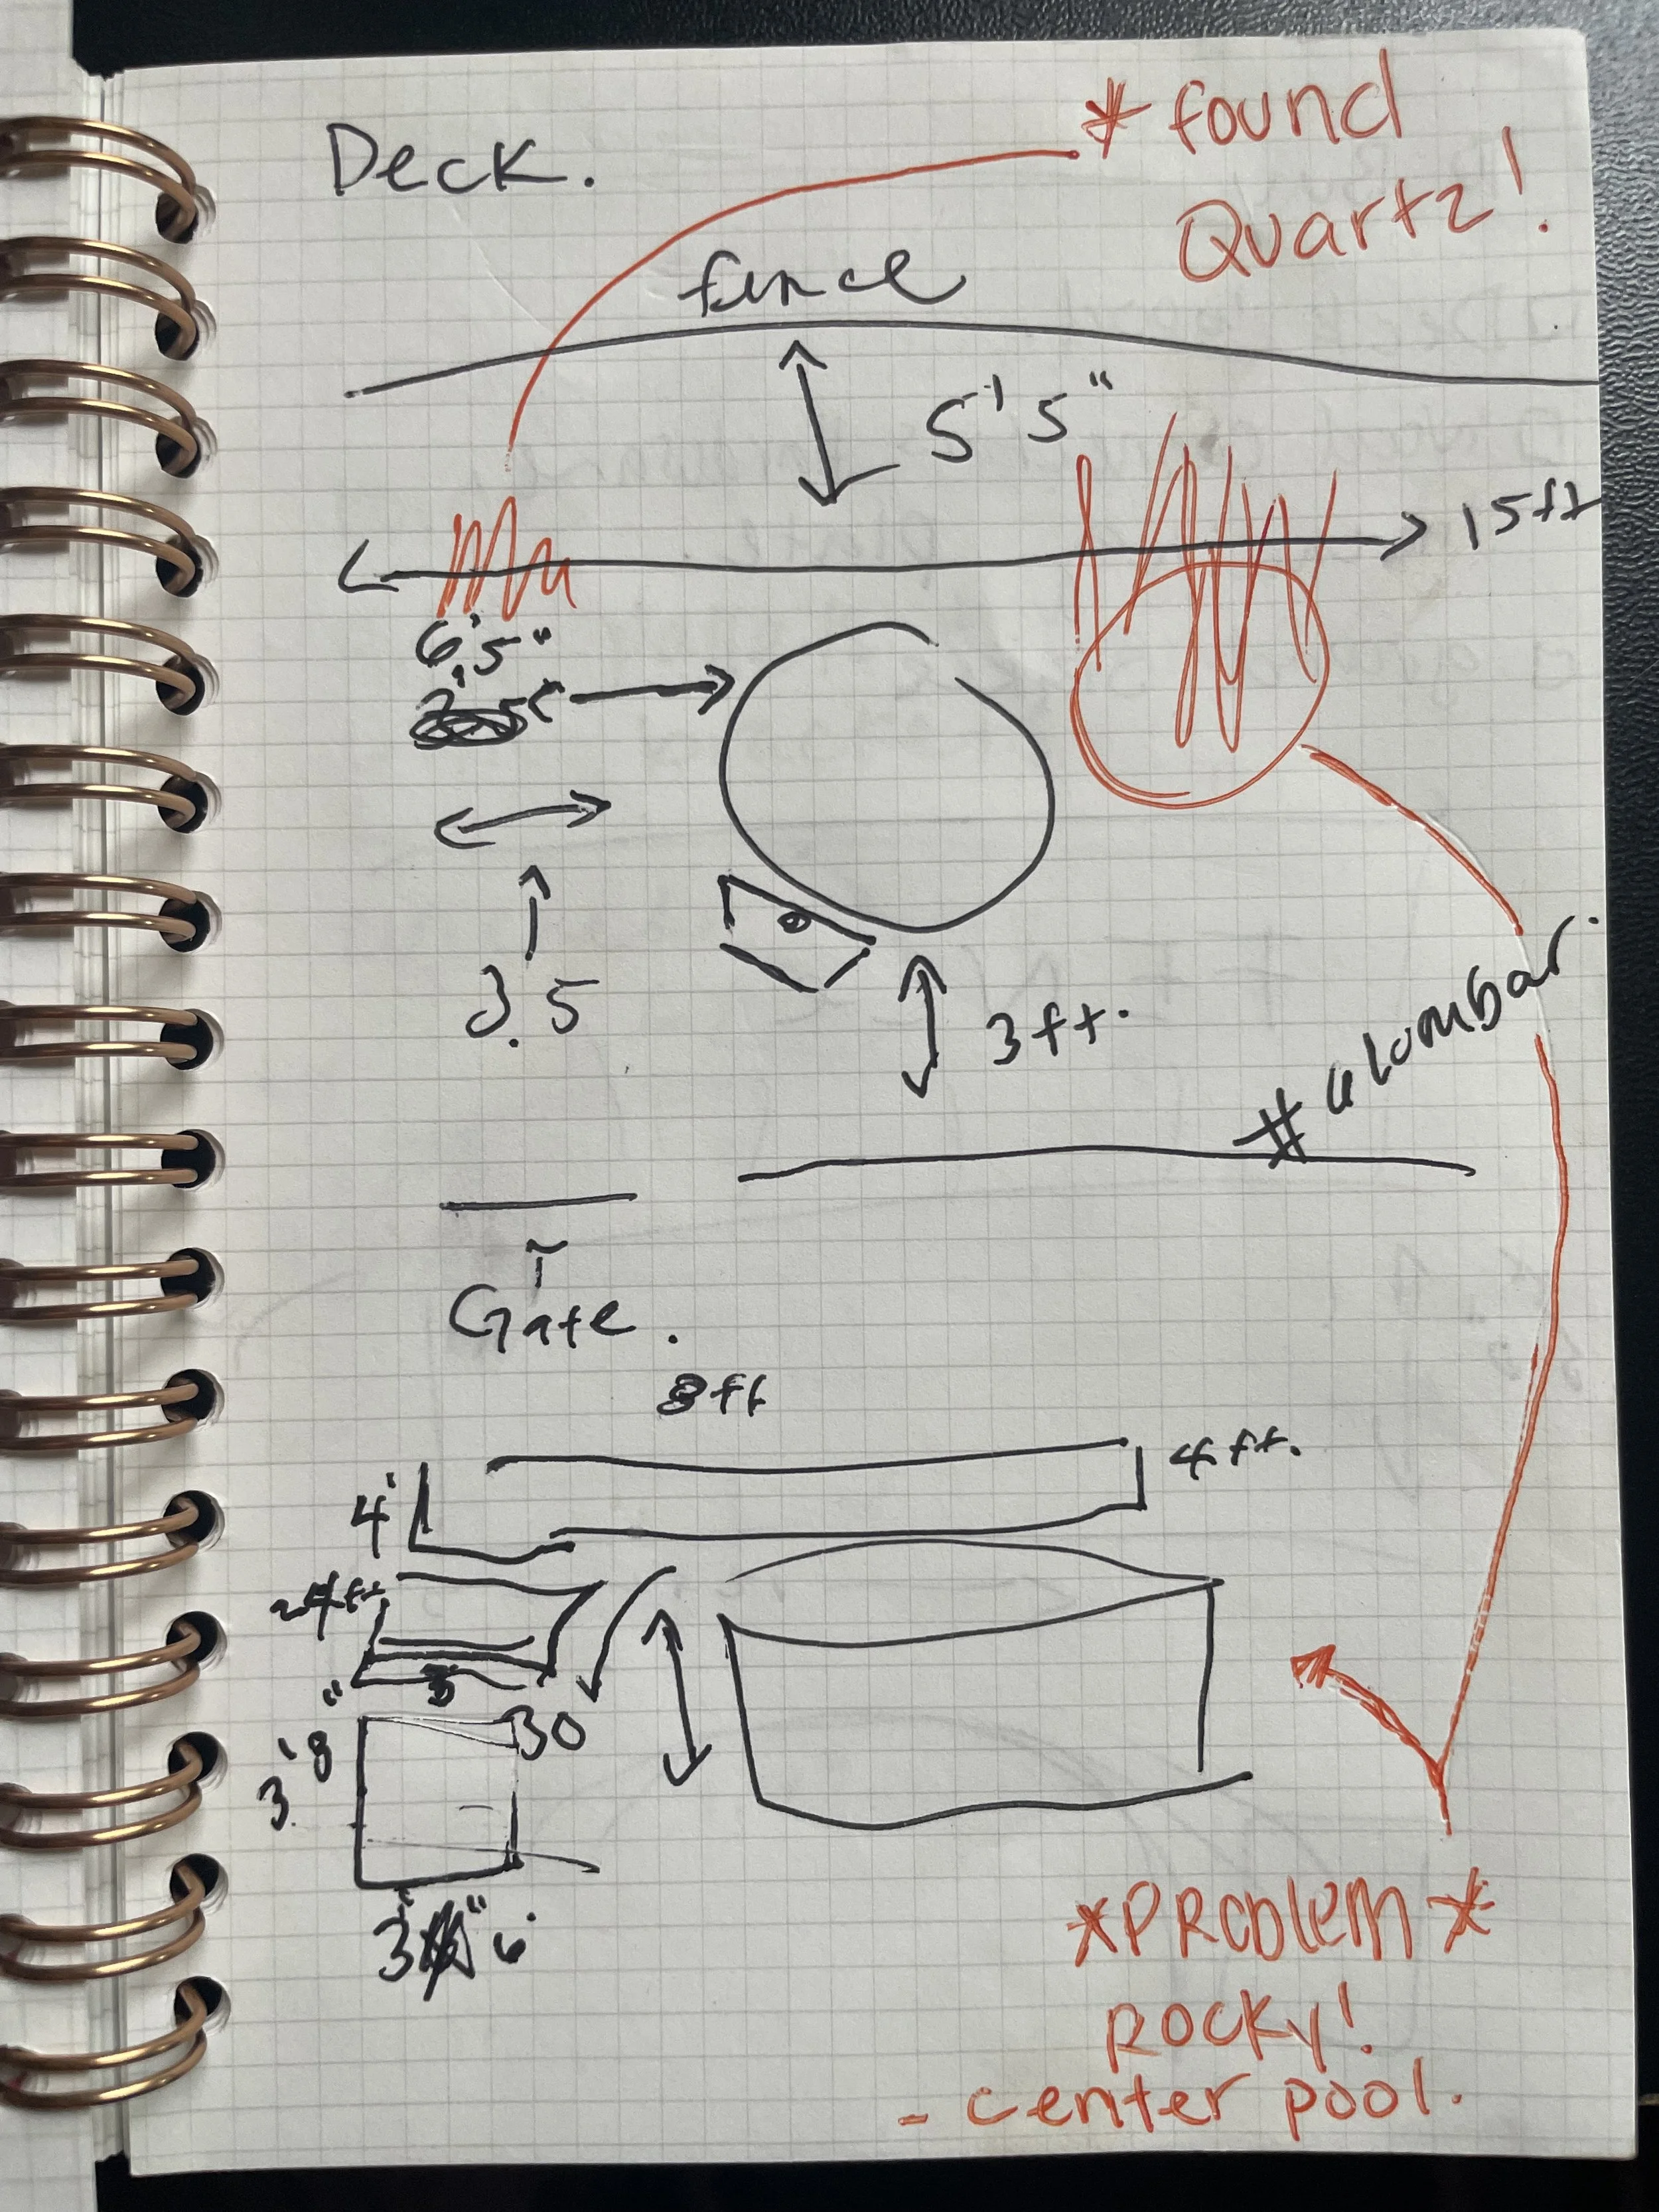 Deck.
* found
Quartz!
fence
5'5"
15ft
6'5"
3.5
3ft.
Gate.
8ft
4ft.
4'
3'8"
30
*PROblem*
ROCKY!
- center pool.